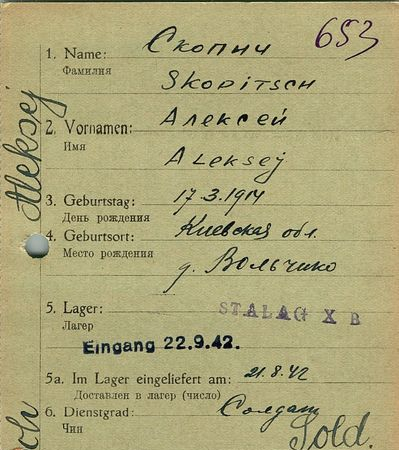 653
1. Name: Скопич
Фамилия
Skopitsch
2. Vornamen: Алексей
Имя
Aleksej
3. Geburtstag: 17.3.1914
День рождения
4. Geburtsort: Киевская обл.
Место рождения
д. Вольчико
5. Lager: STALAG X B
Лагер
Eingang 22.9.42.
5a. Im Lager eingeliefert am: 21.8.42
Доставлен в лагер (число)
6. Dienstgrad: Солдат
Чин
Sold.
Aleksej